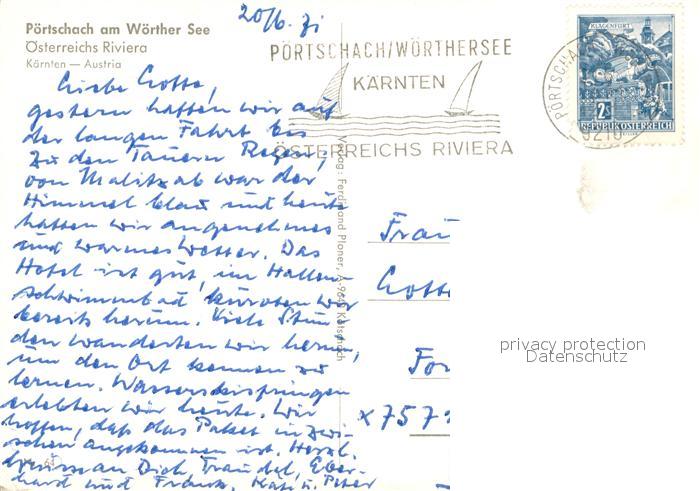 Pörtschach am Wörther See
Österreichs Riviera
Kärnten — Austria
20/6. 71
PÖRTSCHACH/WÖRTHERSEE
KÄRNTEN
ÖSTERREICHS RIVIERA
KLAGENFURT
2S
REPUBLIK ÖSTERREICH
PÖRTSCHA
9210
Liebe Lotte,
gestern hatten wir auf
der langen Fahrt bis
zu den Tauern Regen,
von Malitz ab war der
Himmel blau und heute
hatten wir angenehmes
und warmes Wetter. Das
Hotel ist gut, im Hallen-
schwimmbad kurvten wir
bereits herum. Viele Stun
den wanderten wir herum,
um den Ort kennen zu
lernen. Wasserskispringen
erlebten wir heute. Wir
hoffen, daß das Paket inzwi-
schen angekommen ist. Herzl.
Grüsse an Dich, Traudel, Eber-
hard und Frank, Käti u. Peter
Verlag: Ferdinand Ploner, A-9640 Kötschach
Frau
Lotte
For
X 757
privacy protection
Datenschutz